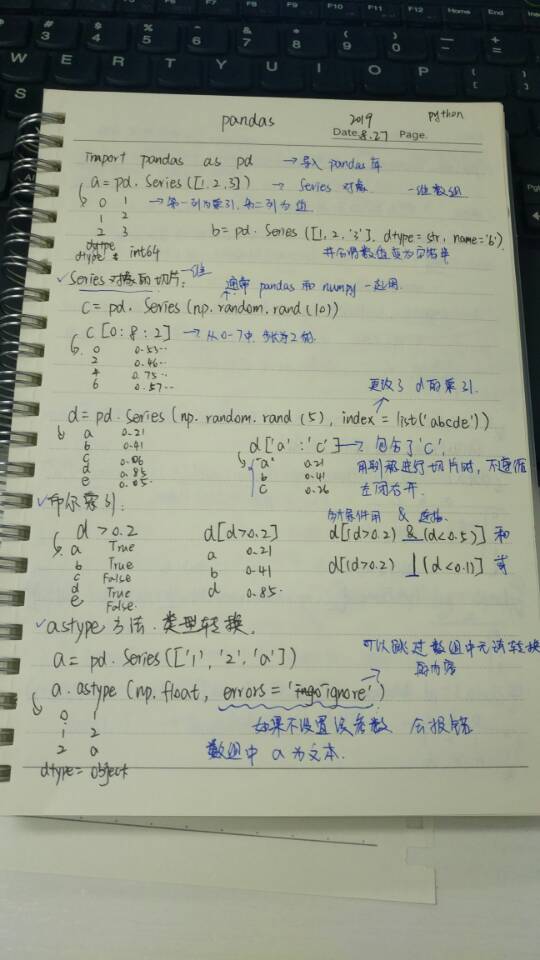 pandas 2019 python
Date 8.27 Page.
import pandas as pd → 导入 pandas 库
a = pd. Series ([1,2,3]) → Series 对象 一维数组
0 1 → 第一列为索引, 第二列为值
1 2
2 3 b = pd. Series ([1,2,'3'], dtype = str, name='b')
dtype = int64
✓ Series 对象的切片: 一维 通常 pandas 和 numpy 一起用
c = pd. Series (np. random. rand (10))
c [0:8:2] → 从0-7中, 步长为2的
0 0.53··
2 0.46··
4 0.75··
6 0.57··
更改了 d 的索引.
d = pd. Series (np. random. rand (5), index = list('abcde'))
a 0.21 d['a':'c'] → 包含了'c'.
b 0.41 "a" 0.21
c 0.06 b 0.41
d 0.85 c 0.26
e 0.05··
用到标签进行切片时, 不遵循
左闭右开.
✓ 布尔索引:
多个条件用 & 连接
d > 0.2 d[d>0.2] d[(d>0.2) & (d<0.5)] 和
a True a 0.21
b True b 0.41 d[(d>0.2) | (d<0.1)] 或
c False d 0.85··
d True
e False.
✓ astype 方法. 类型转换.
a = pd. Series (['1', '2', 'a'])
可以跳过数组中无法转换
的内容
a. astype (np. float, errors = 'ignore')
0 1 如果不设置该参数 会报错
1 2
2 a 数组中 a 为文本.
dtype = object